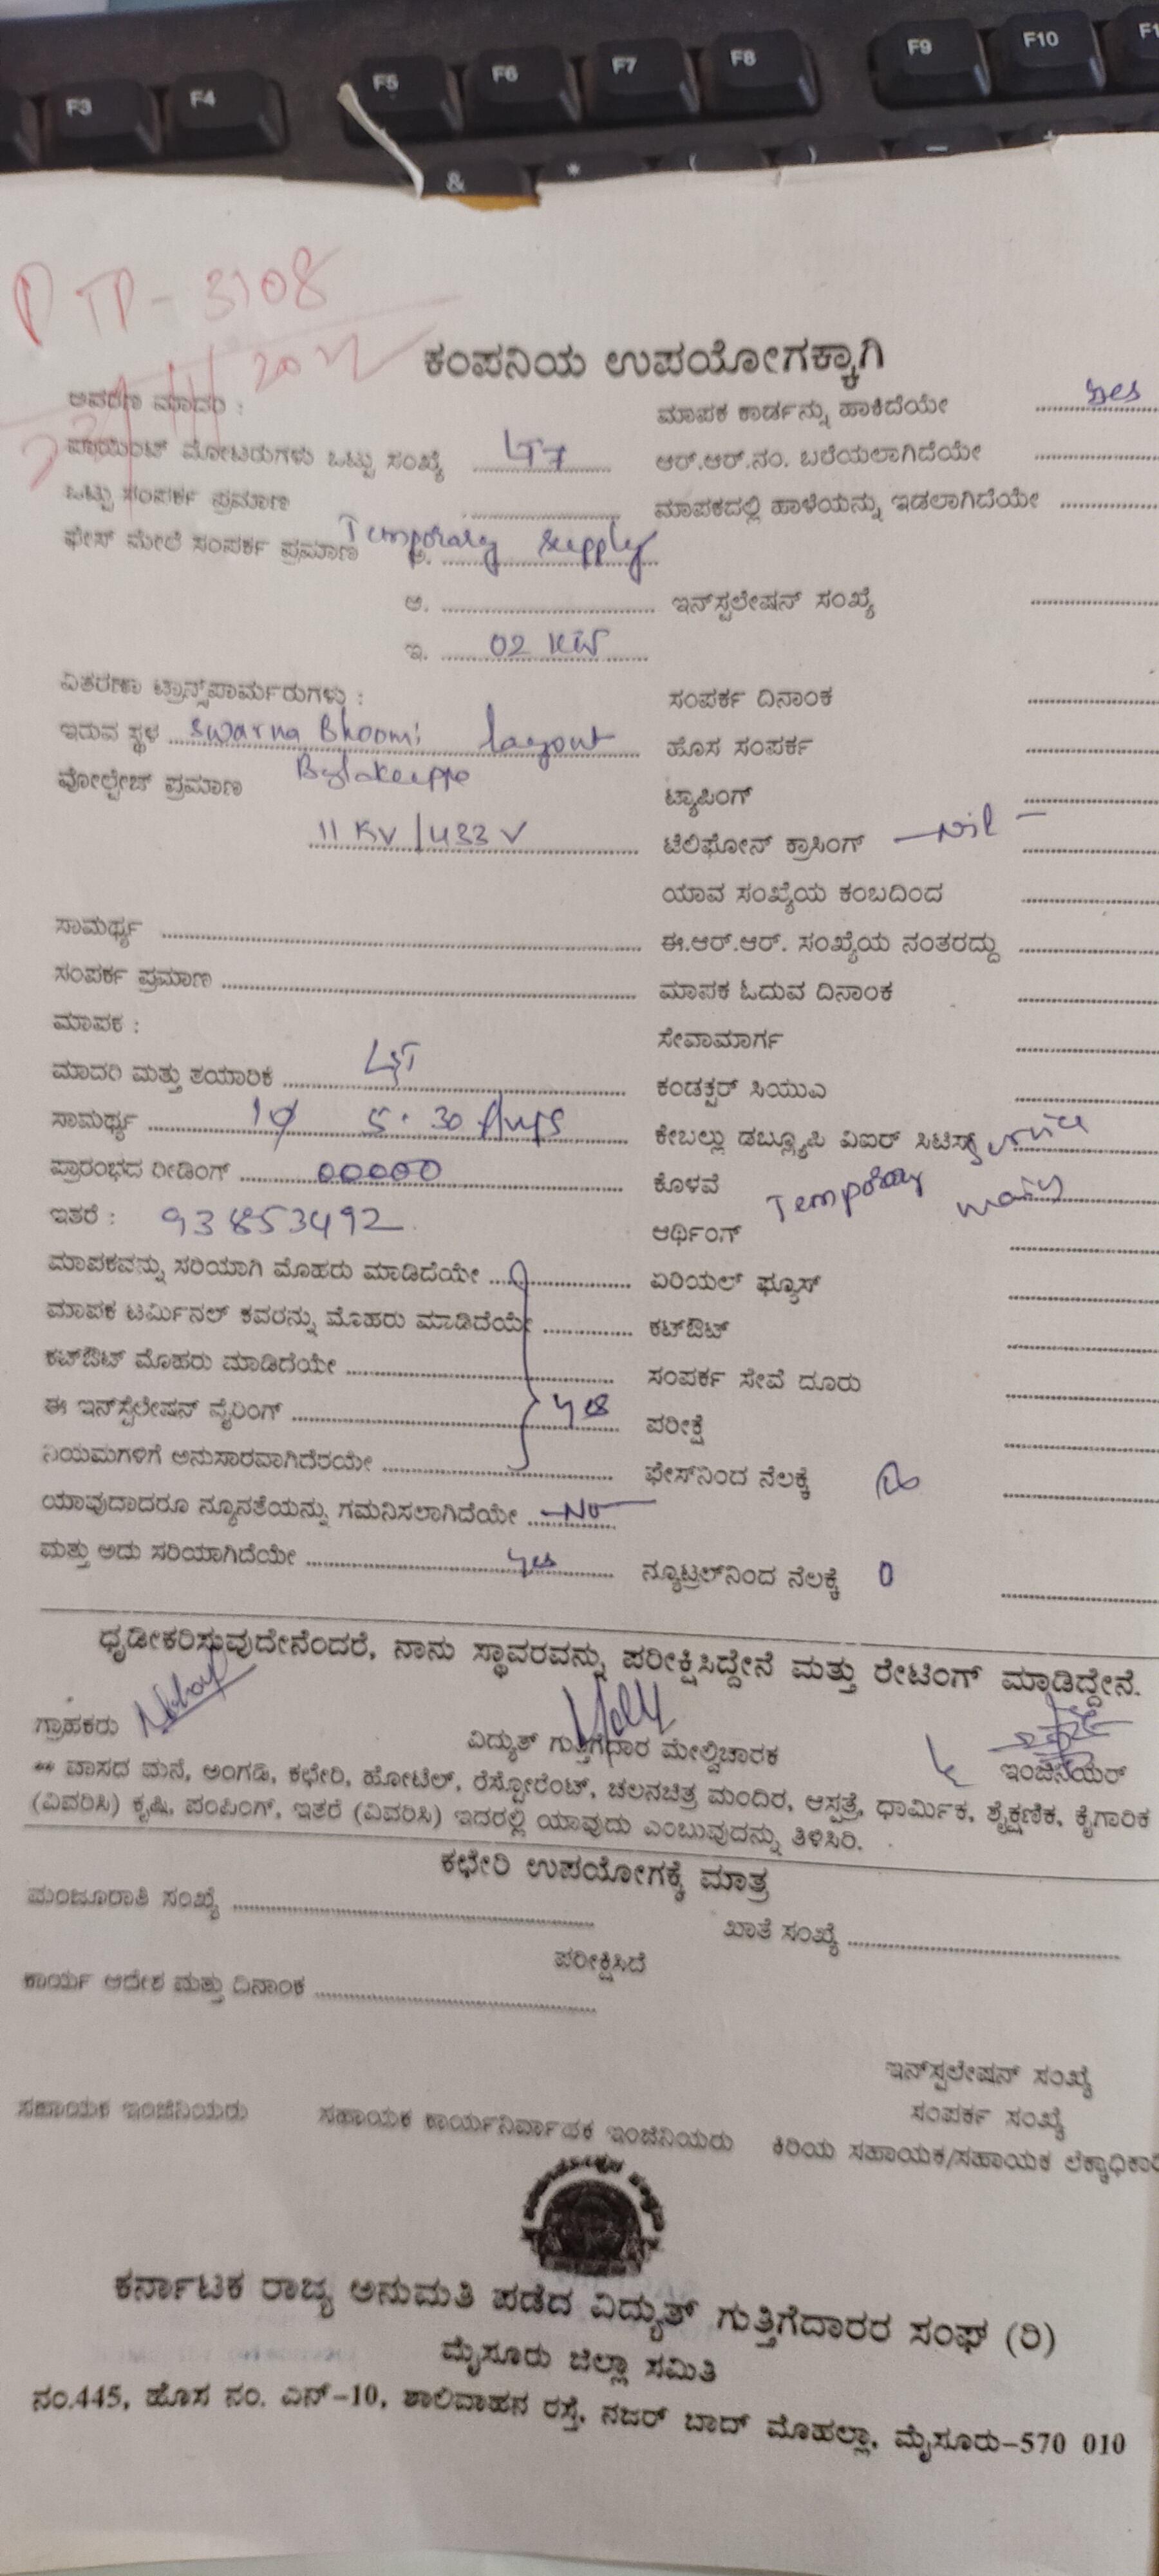 F3 F4 F5 F6 F7 F8 F9 F10 F1
& * ( ) — +
PTP - 3108
2022
ಕಂಪನಿಯ ಉಪಯೋಗಕ್ಕಾಗಿ
ಮಾಪಕ ಕಾರ್ಡನ್ನು ಹಾಕಿದೆಯೇ ........ yes
ಪಾಯಿಂಟ್ ಮೋಟರುಗಳು ಒಟ್ಟು ಸಂಖ್ಯೆ ........ LT7 ಆರ್.ಆರ್.ನಂ. ಬರೆಯಲಾಗಿದೆಯೇ ........
ಒಟ್ಟು ಸಂಪರ್ಕ ಪ್ರಮಾಣ ........ ಮಾಪಕದಲ್ಲಿ ಹಾಳೆಯನ್ನು ಇಡಲಾಗಿದೆಯೇ ........
ಫೇಸ್ ಮೇಲೆ ಸಂಪರ್ಕ ಪ್ರಮಾಣ ಅ. Temporary supply
ಆ. ........ ಇನ್‌ಸ್ಟಲೇಷನ್ ಸಂಖ್ಯೆ ........
ಇ. 02 KW
ವಿತರಣಾ ಟ್ರಾನ್ಸ್‌ಫಾರ್ಮರುಗಳು : ಸಂಪರ್ಕ ದಿನಾಂಕ ........
ಇರುವ ಸ್ಥಳ Swarna Bhoomi layout ಹೊಸ ಸಂಪರ್ಕ ........
Bylakuppe
ವೋಲ್ಟೇಜ್ ಪ್ರಮಾಣ ಟ್ಯಾಪಿಂಗ್ ........
11 KV / 433 V ಟೆಲಿಫೋನ್ ಕ್ರಾಸಿಂಗ್ — Nil — ........
ಯಾವ ಸಂಖ್ಯೆಯ ಕಂಬದಿಂದ ........
ಸಾಮರ್ಥ್ಯ ........ ಈ.ಆರ್.ಆರ್. ಸಂಖ್ಯೆಯ ನಂತರದ್ದು ........
ಸಂಪರ್ಕ ಪ್ರಮಾಣ ........ ಮಾಪಕ ಓದುವ ದಿನಾಂಕ ........
ಮಾಪಕ : ಸೇವಾಮಾರ್ಗ ........
ಮಾದರಿ ಮತ್ತು ತಯಾರಿಕೆ ........ L&T ಕಂಡಕ್ಟರ್ ಸಿಯುಎ ........
ಸಾಮರ್ಥ್ಯ ........ 1φ 5-30 Amps ಕೇಬಲ್ಲು ಡಬ್ಲ್ಯೂಪಿ ವಿಐರ್ ಸಿಟಿಸ್ service
ಪ್ರಾರಂಭದ ರೀಡಿಂಗ್ ........ 00000 ಕೊಳವೆ Temporary mains
ಇತರೆ : 93853492 ಆರ್ಥಿಂಗ್ ........
ಮಾಪಕವನ್ನು ಸರಿಯಾಗಿ ಮೊಹರು ಮಾಡಿದೆಯೇ ........ ಏರಿಯಲ್ ಫ್ಯೂಸ್ ........
ಮಾಪಕ ಟರ್ಮಿನಲ್ ಕವರನ್ನು ಮೊಹರು ಮಾಡಿದೆಯೇ ........ ಕಟ್‌ಔಟ್ ........
ಕಟ್‌ಔಟ್ ಮೊಹರು ಮಾಡಿದೆಯೇ ........ ಸಂಪರ್ಕ ಸೇವೆ ದೂರು ........
ಈ ಇನ್‌ಸ್ಟೆಲೇಷನ್ ವೈರಿಂಗ್ ........ yes ಪರೀಕ್ಷೆ ........
ನಿಯಮಗಳಿಗೆ ಅನುಸಾರವಾಗಿದೆರಯೇ ........ ಫೇಸ್‌ನಿಂದ ನೆಲಕ್ಕೆ ........
ಯಾವುದಾದರೂ ನ್ಯೂನತೆಯನ್ನು ಗಮನಿಸಲಾಗಿದೆಯೇ ... No
ಮತ್ತು ಅದು ಸರಿಯಾಗಿದೆಯೇ ........ yes ನ್ಯೂಟ್ರಲ್‌ನಿಂದ ನೆಲಕ್ಕೆ 0 ........
ಧೃಡೀಕರಿಸುವುದೇನೆಂದರೆ, ನಾನು ಸ್ಥಾವರವನ್ನು ಪರೀಕ್ಷಿಸಿದ್ದೇನೆ ಮತ್ತು ರೇಟಿಂಗ್ ಮಾಡಿದ್ದೇನೆ.
ಗ್ರಾಹಕರು ವಿದ್ಯುತ್ ಗುತ್ತಿಗೆದಾರ ಮೇಲ್ವಿಚಾರಕ ಇಂಜಿನಿಯರ್
** ವಾಸದ ಮನೆ, ಅಂಗಡಿ, ಕಛೇರಿ, ಹೋಟೆಲ್, ರೆಸ್ಟೋರೆಂಟ್, ಚಲನಚಿತ್ರ ಮಂದಿರ, ಆಸ್ಪತ್ರೆ, ಧಾರ್ಮಿಕ, ಶೈಕ್ಷಣಿಕ, ಕೈಗಾರಿಕ
(ವಿವರಿಸಿ) ಕೃಷಿ, ಪಂಪಿಂಗ್, ಇತರೆ (ವಿವರಿಸಿ) ಇದರಲ್ಲಿ ಯಾವುದು ಎಂಬುವುದನ್ನು ತಿಳಿಸಿರಿ.
ಕಛೇರಿ ಉಪಯೋಗಕ್ಕೆ ಮಾತ್ರ
ಮಂಜೂರಾತಿ ಸಂಖ್ಯೆ ........ ಖಾತೆ ಸಂಖ್ಯೆ ........
ಪರೀಕ್ಷಿಸಿದೆ
ಕಾರ್ಯ ಆದೇಶ ಮತ್ತು ದಿನಾಂಕ ........
ಇನ್‌ಸ್ಟಲೇಷನ್ ಸಂಖ್ಯೆ
ಸಂಪರ್ಕ ಸಂಖ್ಯೆ
ಸಹಾಯಕ ಇಂಜಿನಿಯರು ಸಹಾಯಕ ಕಾರ್ಯನಿರ್ವಾಹಕ ಇಂಜಿನಿಯರು ಕಿರಿಯ ಸಹಾಯಕ/ಸಹಾಯಕ ಲೆಕ್ಕಾಧಿಕಾರಿ
ಕರ್ನಾಟಕ ರಾಜ್ಯ ಅನುಮತಿ ಪಡೆದ ವಿದ್ಯುತ್ ಗುತ್ತಿಗೆದಾರರ ಸಂಘ (ರಿ)
ಮೈಸೂರು ಜಿಲ್ಲಾ ಸಮಿತಿ
ನಂ.445, ಹೊಸ ನಂ. ಎನ್-10, ಶಾಲಿವಾಹನ ರಸ್ತೆ, ನಜರ್ ಬಾದ್ ಮೊಹಲ್ಲಾ, ಮೈಸೂರು-570 010